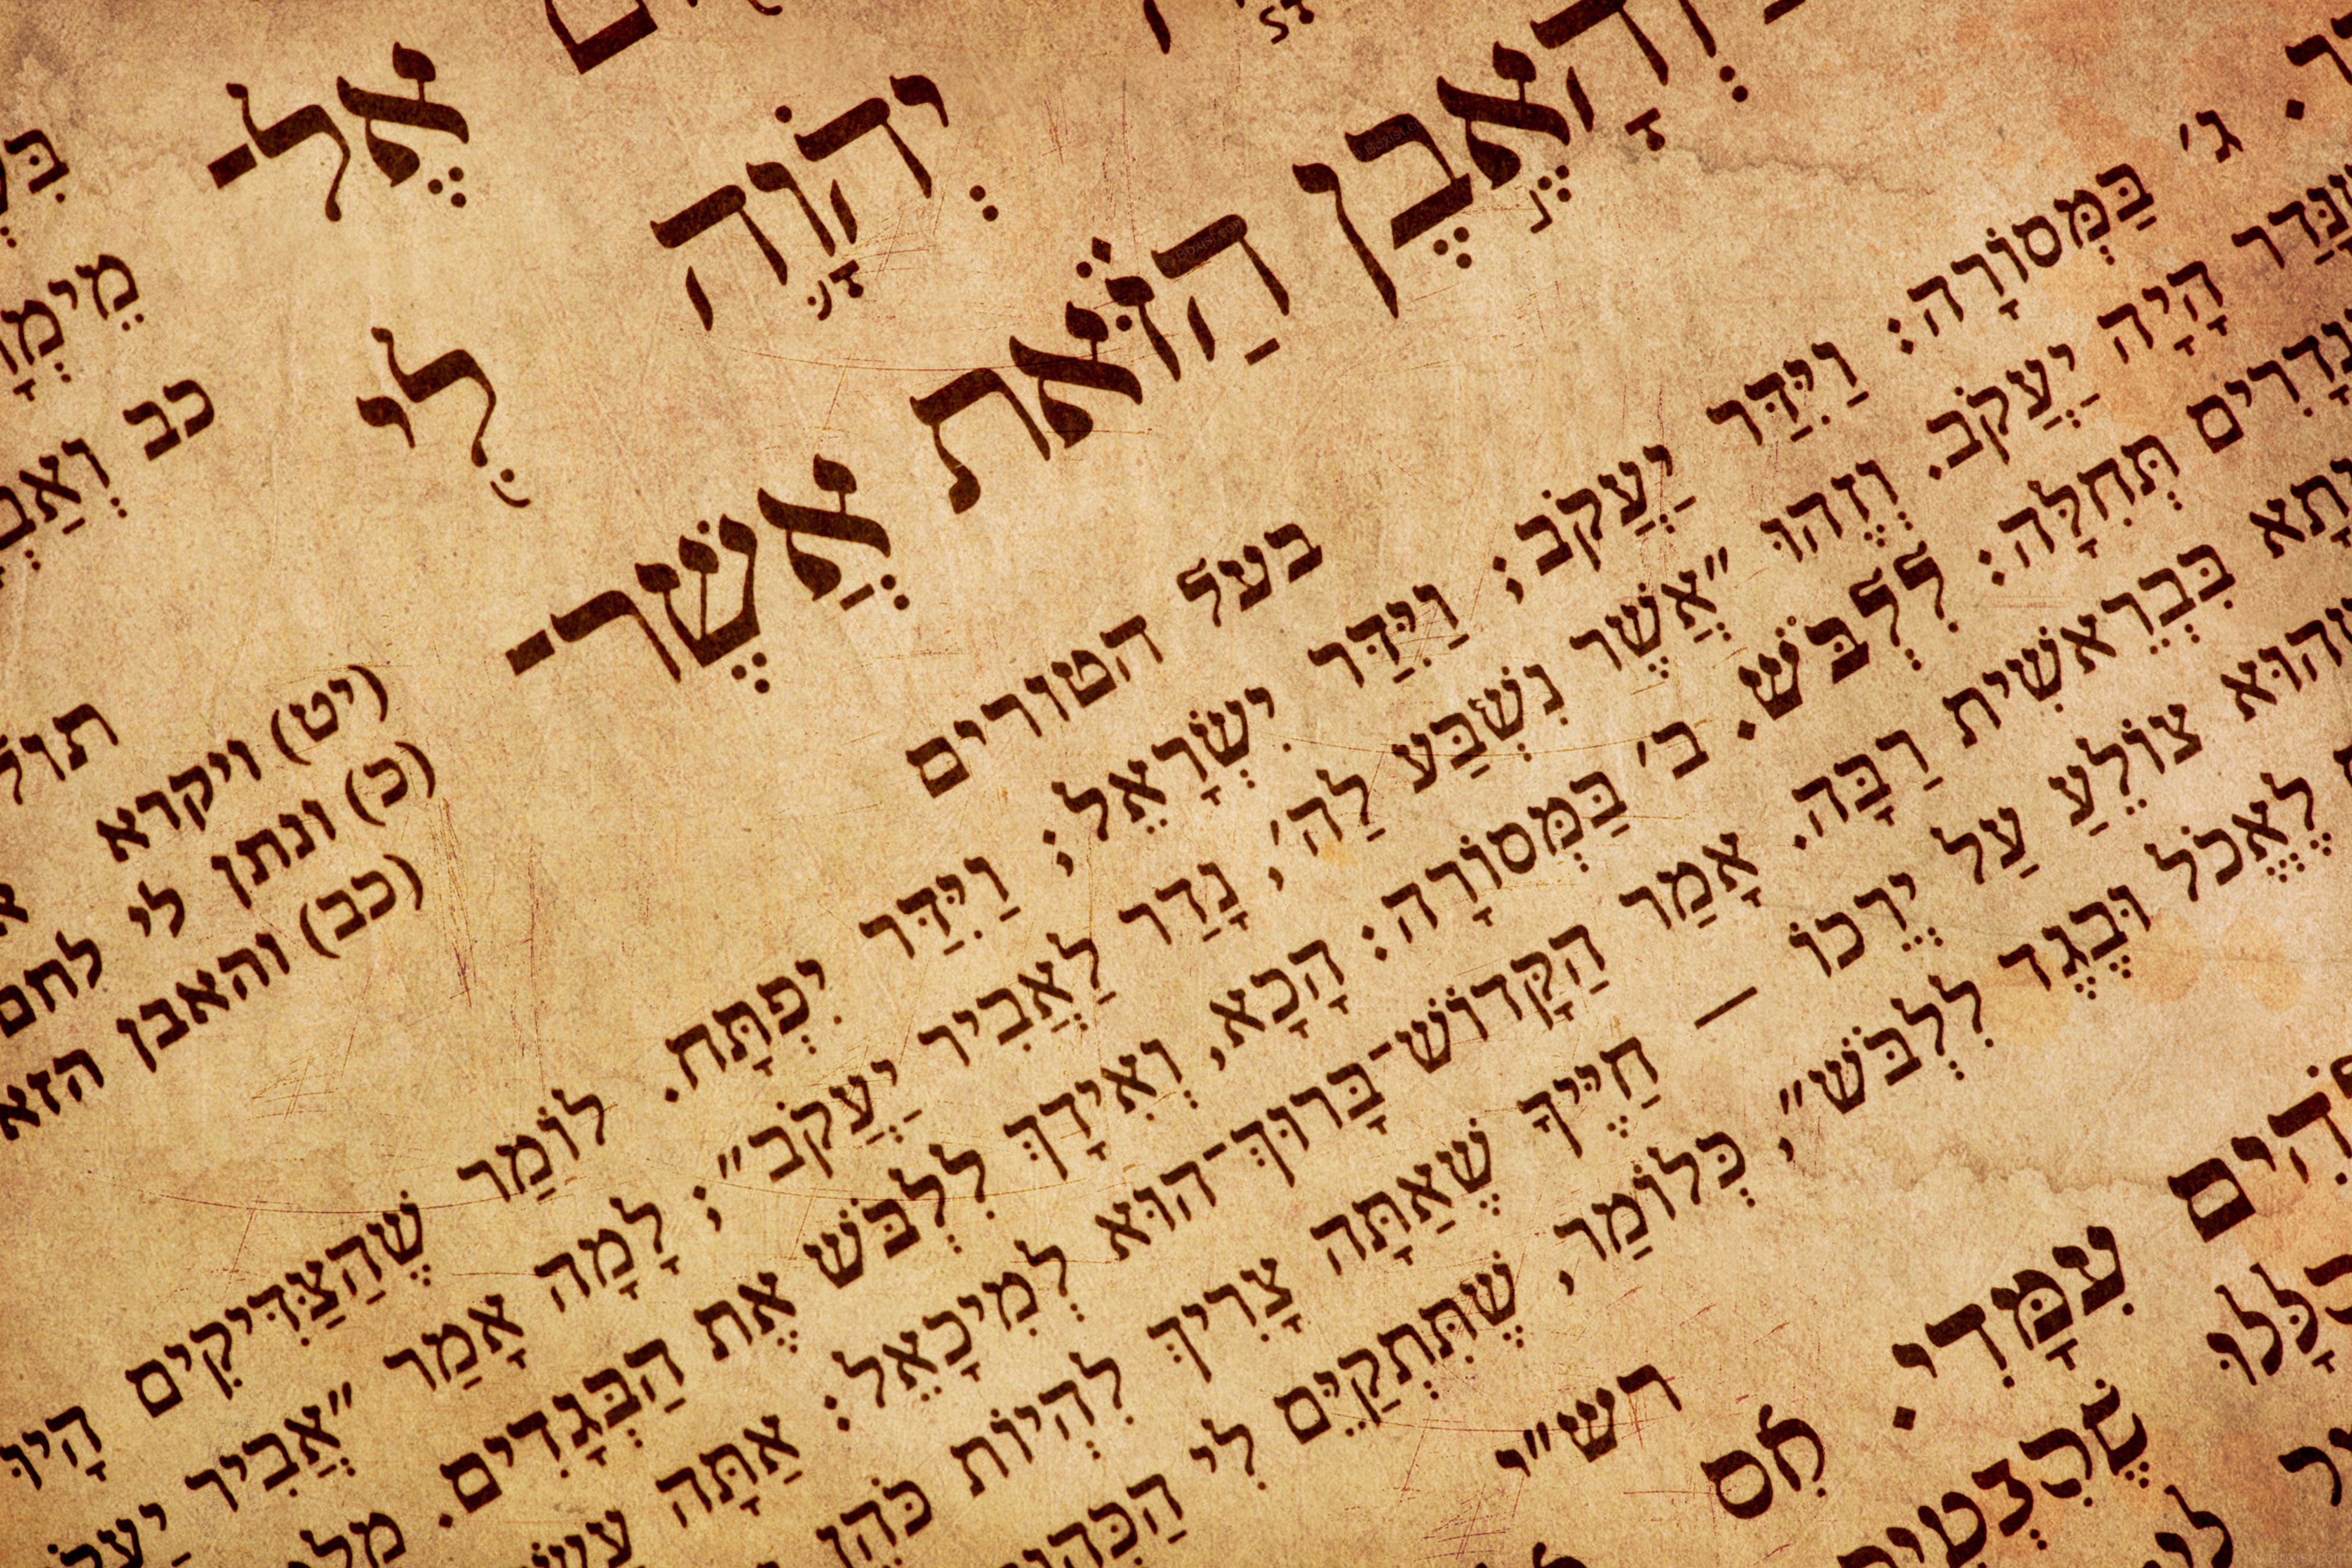 אֶל־
יְהֹוָה לִי
וְהָאֶבֶן הַזֹּאת אֲשֶׁר־
כב
(יט) ויקרא
(כ) ונתן לי לחם
(כב) והאבן
בעל הטורים
ג׳ בַּמְּסוֹרָה: וַיִּדַּר יַעֲקֹב; וַיִּדַּר יִשְׂרָאֵל; וַיִּדַּר יִפְתָּח. לוֹמַר שֶׁהַצַּדִּיקִים הָיוּ
הָיָה יַעֲקֹב. וְזֶהוּ ״אֲשֶׁר נִשְׁבַּע לַה׳, נָדַר לַאֲבִיר יַעֲקֹב״; לָמָה אָמַר ״אֲבִיר
נְדָרִים תְּחִלָּה: לִלְבֹּשׁ. ב׳ בַּמְּסוֹרָה: הָכָא, וְאִידָךְ לִלְבֹּשׁ אֶת הַבְּגָדִים.
בִּבְרֵאשִׁית רַבָּה. אָמַר הַקָּדוֹשׁ־בָּרוּךְ־הוּא לְמִיכָאֵל: אַתָּה
וְהוּא צוֹלֵעַ עַל יְרֵכוֹ — חַיֶּיךָ שֶׁאַתָּה צָרִיךְ לִהְיוֹת כֹּהֵן
לֶאֱכֹל וּבֶגֶד לִלְבֹּשׁ״, כְּלוֹמַר, שֶׁתִּתְקַיֵּם לִי
רש״י
עִמָּדִי. אִם